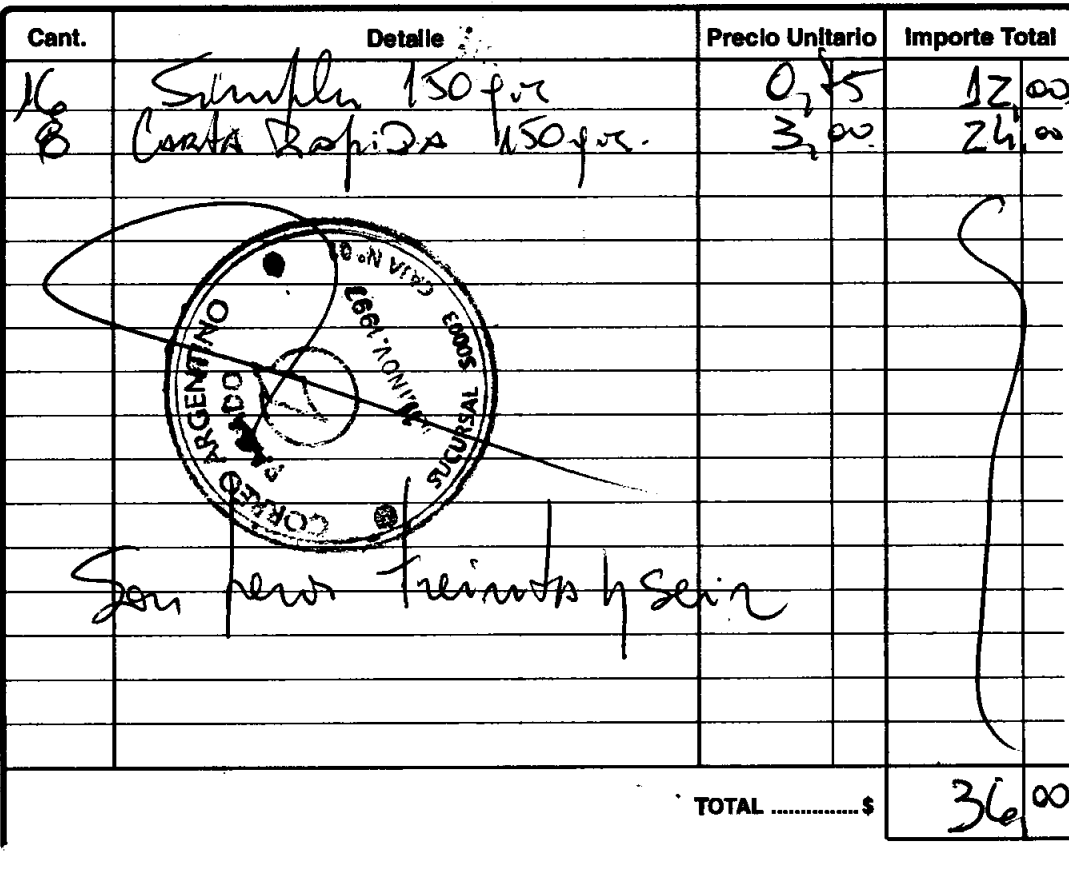 Cant. Detalle Precio Unitario Importe Total
16 Simples 150 gr. 0,75 12,00
8 Carta Rapida 150 gr. 3,00 24,00
CORREO ARGENTINO
SUCURSAL S0003
CAJA Nº 01
NOV. 1997
Son pesos treinta y seis
TOTAL ................ $ 36,00